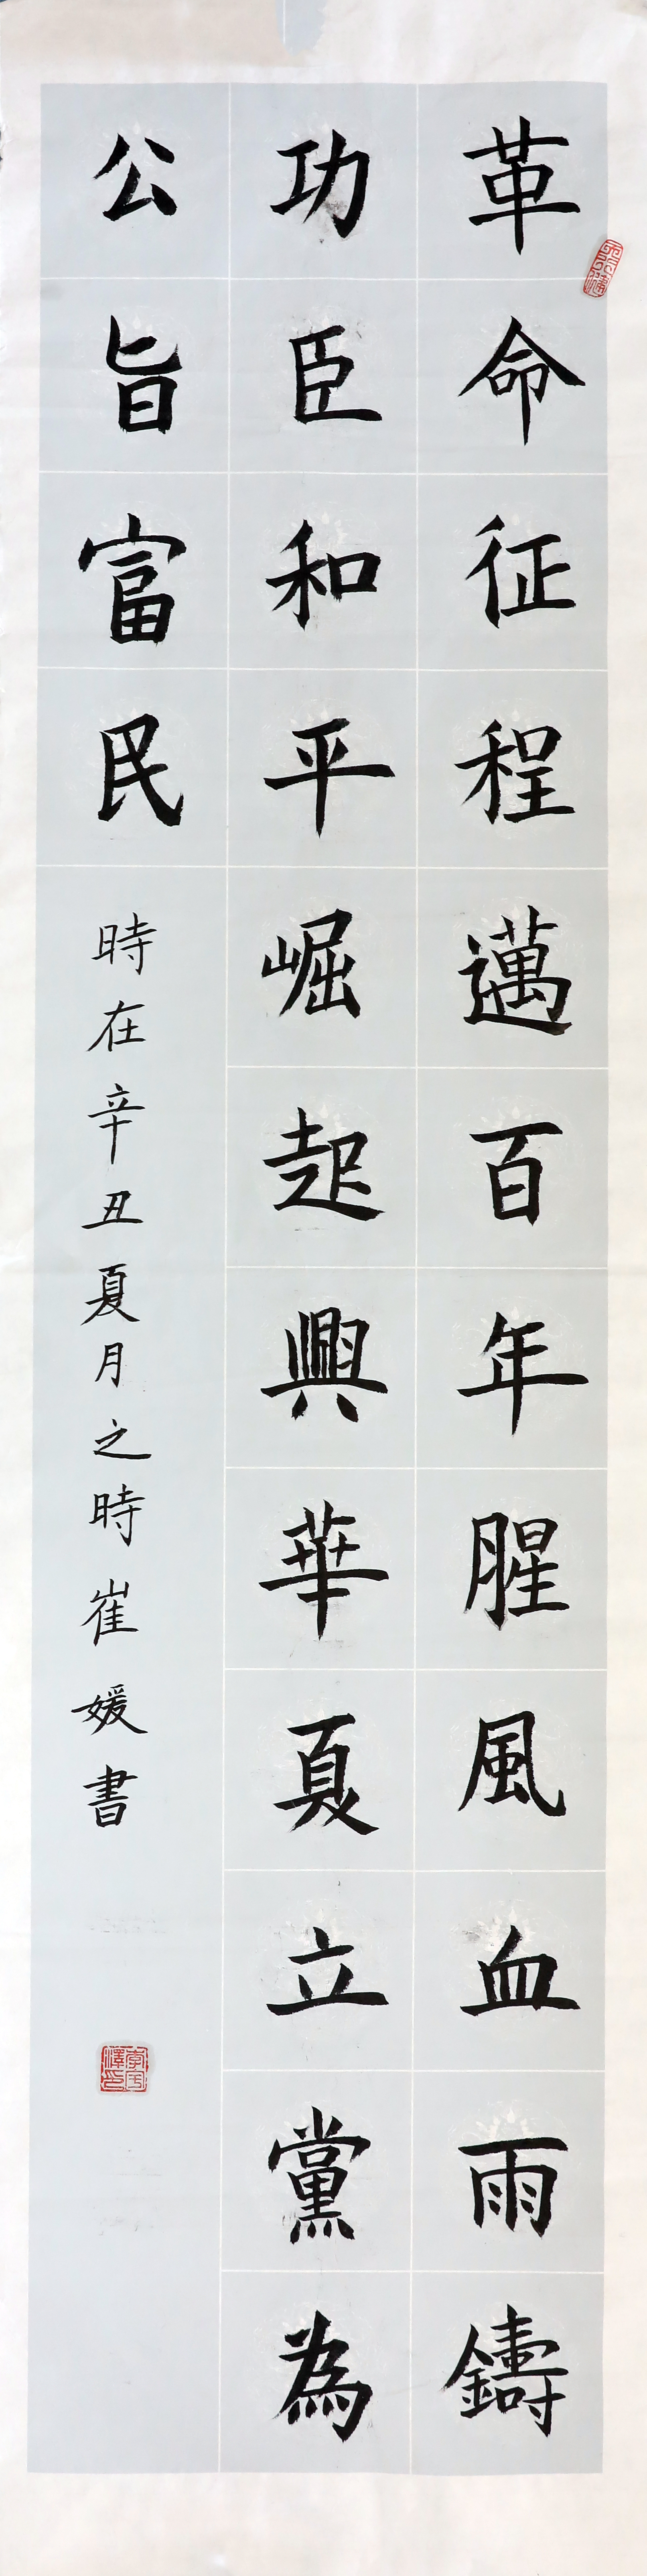 革命征程邁百年腥風血雨鑄
功臣和平崛起興華夏立黨為
公旨富民
時在辛丑夏月之時崔媛書